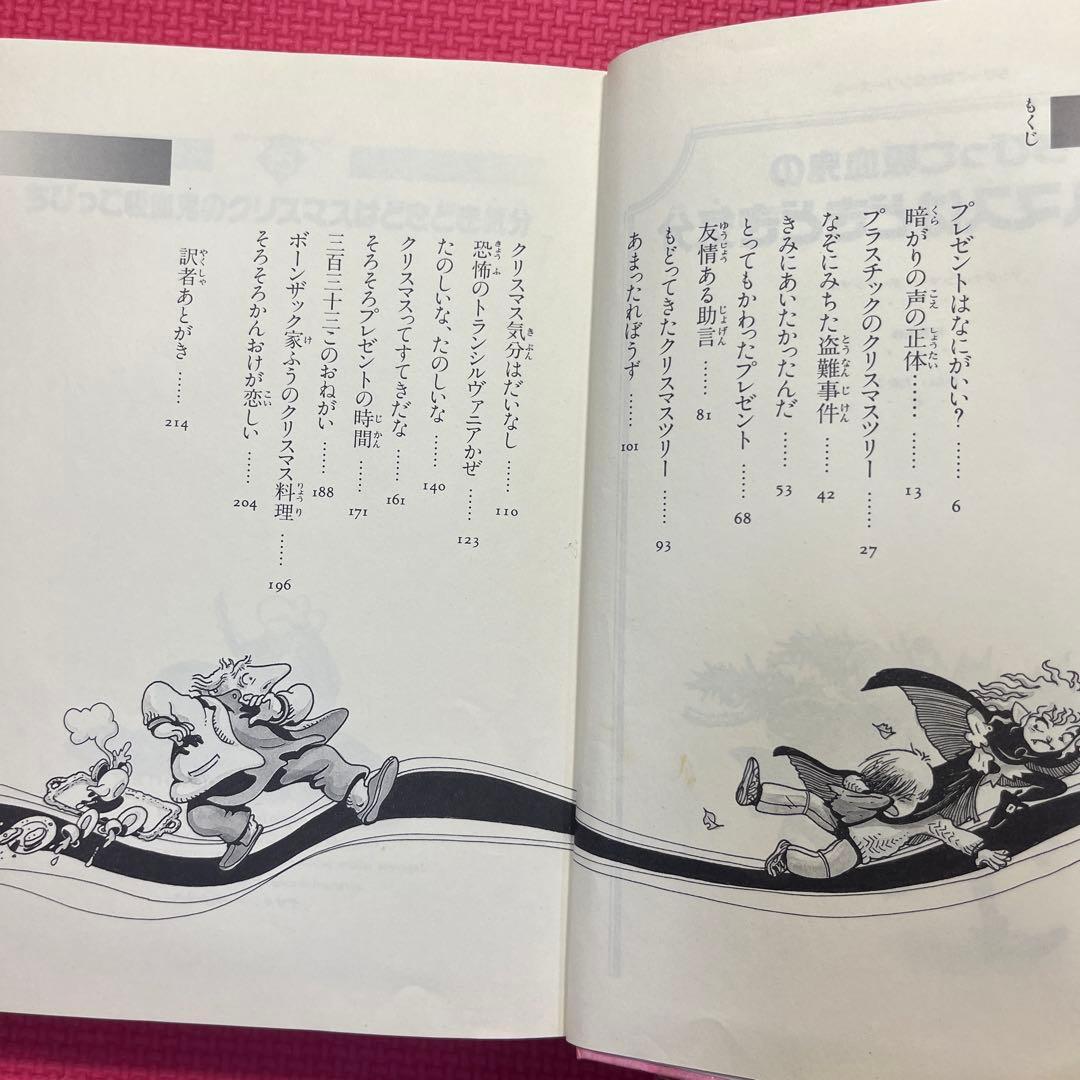 もくじ
プレゼントはなにがいい？…… 6
暗がりの声の正体…… 13
プラスチックのクリスマスツリー…… 27
なぞにみちた盗難事件…… 42
きみにあいたかったんだ…… 53
とってもかわったプレゼント…… 68
友情ある助言…… 81
もどってきたクリスマスツリー…… 93
あまったれぼうず…… 101
クリスマス気分はだいなし…… 110
恐怖のトランシルヴァニアかぜ…… 123
たのしいな、たのしいな…… 140
クリスマスってすてきだな…… 161
そろそろプレゼントの時間…… 171
三百三十三このおねがい…… 188
ボーンザック家ふうのクリスマス料理…… 196
そろそろかんおけが恋しい…… 204
訳者あとがき…… 214